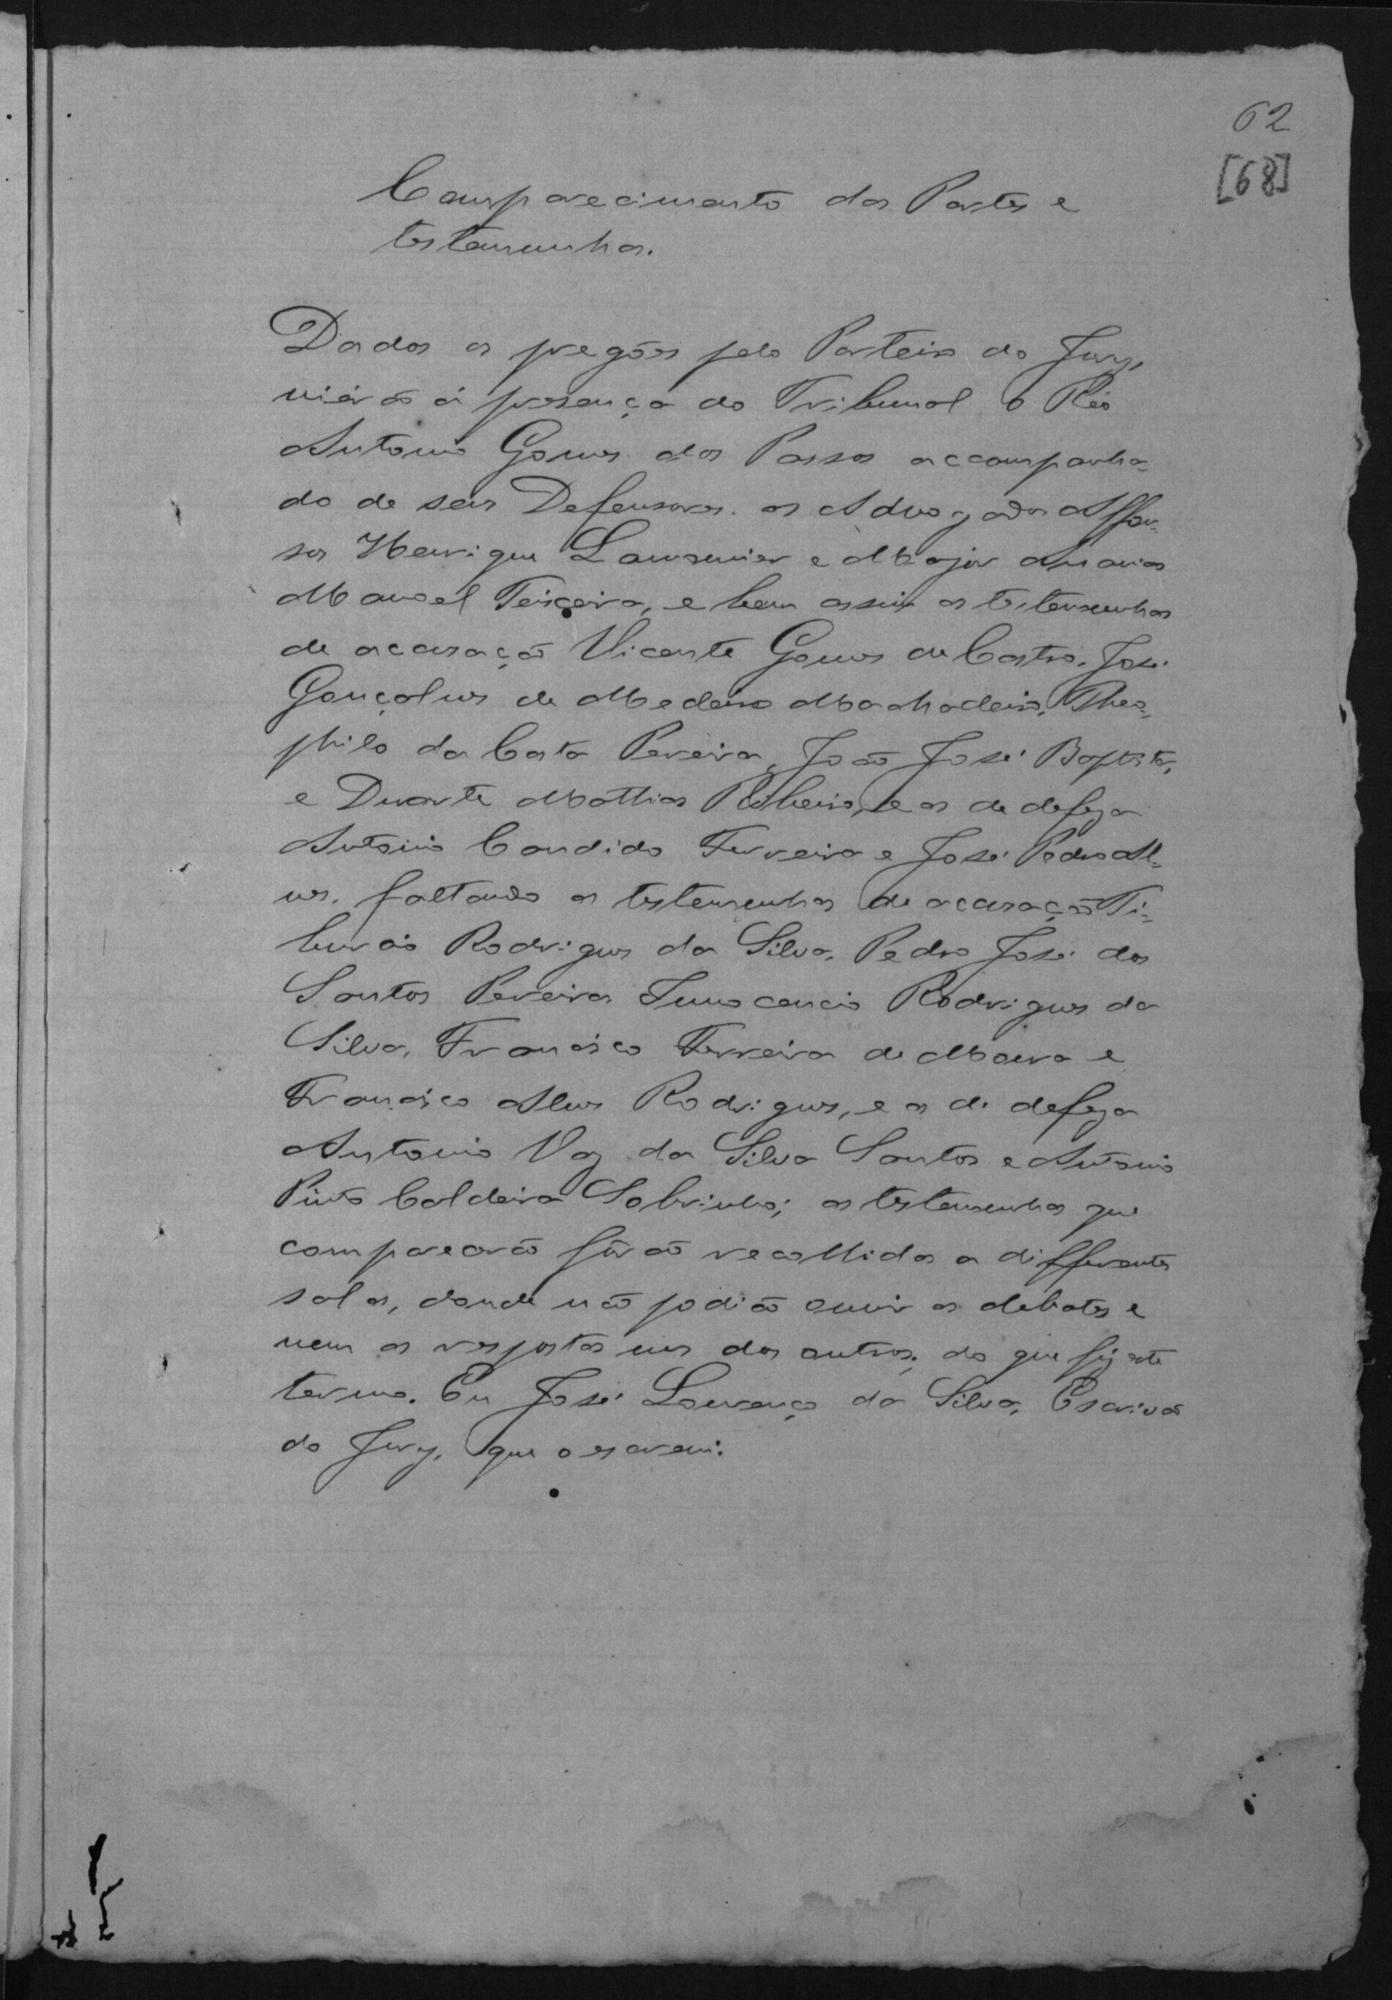 62
[68]
Comparecimento das Partes e
testemunhas.
Dados os pregões pelo Porteiro do Jury,
vierão á presença do Tribunal o Réo
Antonio Gomes dos Passos accompanha-
do de seus Defensores os Advogados Affon-
so Henrique e Major
Manoel Teixeira, e bem assim as testemunhas
de accusação Vicente Gomes de Castro, José
Gonçalves de Medeiros Machadeiro, Theo-
philo da Costa Pereira, João José Baptista,
e Duarte Mathias Ribeiro, e as de defeza
Antonio Candido Ferreira e José Pedro Al-
ves, faltando as testemunhas de accusação Ti-
burcio Rodrigues da Silva, Pedro José dos
Santos Pereira, Innocencio Rodrigues da
Silva, Francisco Ferreira de Moura e
Francisco Alves Rodrigues, e as de defeza
Antonio Vaz da Silva Santos e Antonio
Pinto Caldeira Sobrinho; as testemunhas que
comparecerão fôrão recolhidas a differentes
salas, donde não podião ouvir os debates e
nem as respostas uns dos outros; do que fiz este
termo. Eu José Lourenço da Silva, Escrivão
do Jury, que o escrevi.